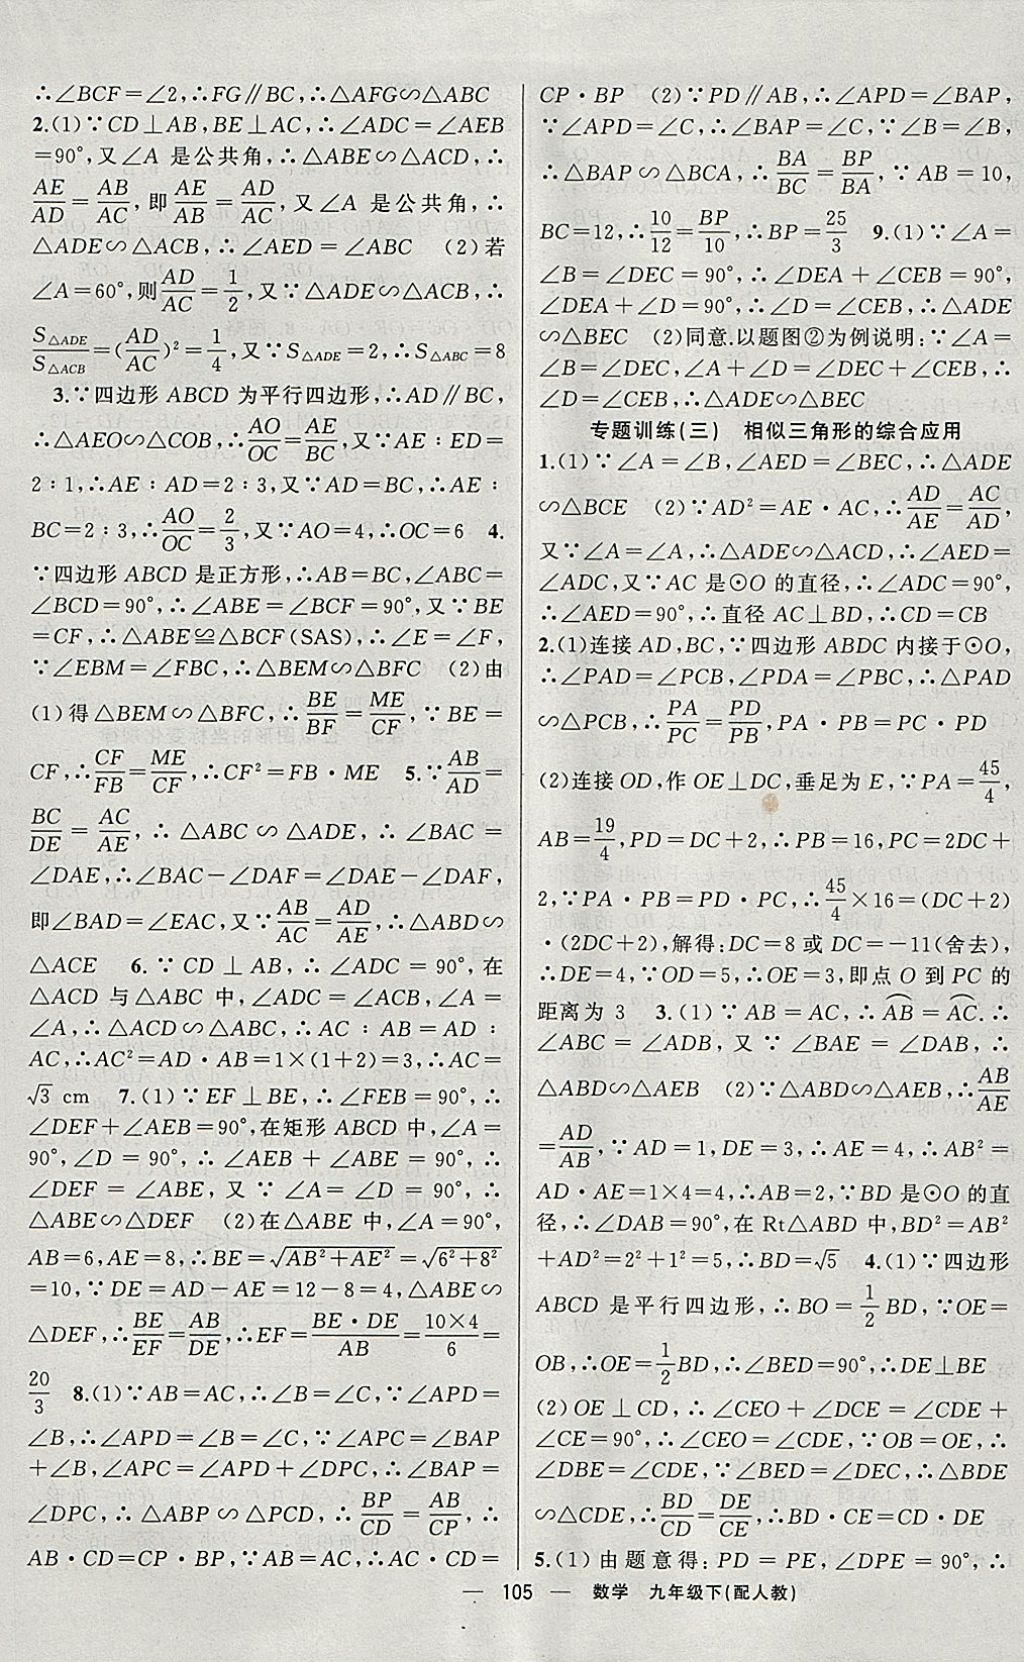 ∴∠BCF=∠2,∴FG∥BC,∴△AFG∽△ABC
2.(1)∵CD⊥AB,BE⊥AC,∴∠ADC=∠AEB
=90°,又∠A 是公共角,∴△ABE∽△ACD,∴
AE/AD=AB/AC,即AE/AB=AD/AC,又∠A 是公共角,∴
△ADE∽△ACB,∴∠AED=∠ABC (2)若
∠A=60°,则AD/AC=1/2,又∵△ADE∽△ACB,∴
S△ADE/S△ACB=(AD/AC)²=1/4,又∵S△ADE=2,∴S△ABC=8
3.∵四边形 ABCD 为平行四边形,∴AD∥BC,
∴△AEO∽△COB,∴AO/OC=AE/BC,又∵AE∶ED=
2∶1,∴AE∶AD=2∶3,又∵AD=BC,∴AE∶
BC=2∶3,∴AO/OC=2/3,又∵AO=4,∴OC=6 4.
∵四边形 ABCD 是正方形,∴AB=BC,∠ABC=
∠BCD=90°,∴∠ABE=∠BCF=90°,又∵BE
=CF,∴△ABE≌△BCF(SAS),∴∠E=∠F,
∵∠EBM=∠FBC,∴△BEM∽△BFC (2)由
(1)得△BEM∽△BFC,∴BE/BF=ME/CF,∵BE=
CF,∴CF/FB=ME/CF,∴CF²=FB·ME 5.∵AB/AD=
BC/DE=AC/AE,∴△ABC∽△ADE,∴∠BAC=
∠DAE,∴∠BAC－∠DAF=∠DAE－∠DAF,
即∠BAD=∠EAC,又∵AB/AC=AD/AE,∴△ABD∽
△ACE 6.∵CD⊥AB,∴∠ADC=90°,在
△ACD 与△ABC 中,∠ADC=∠ACB,∠A=
∠A,∴△ACD∽△ABC,∴AC∶AB=AD∶
AC,∴AC²=AD·AB=1×(1+2)=3,∴AC=
√3 cm 7.(1)∵EF⊥BE,∴∠FEB=90°,∴
∠DEF+∠AEB=90°,在矩形 ABCD 中,∠A=
90°,∠D=90°,∴∠AEB+∠ABE=90°,∴
∠DEF=∠ABE,又∵∠A=∠D=90°,∴
△ABE∽△DEF (2)在△ABE 中,∠A=90°,
AB=6,AE=8,∴BE=√(AB²+AE²)=√(6²+8²)
=10,∵DE=AD－AE=12－8=4,△ABE∽
△DEF,∴BE/EF=AB/DE,∴EF=BE·DE/AB=10×4/6=
20/3 8.(1)∵AB=AC,∴∠B=∠C,∵∠APD=
∠B,∴∠APD=∠B=∠C,∵∠APC=∠BAP
+∠B,∠APC=∠APD+∠DPC,∴∠BAP=
∠DPC,∴△ABP∽△PCD,∴BP/CD=AB/CP,∴
AB·CD=CP·BP,∵AB=AC,∴AC·CD=
CP·BP (2)∵PD∥AB,∴∠APD=∠BAP,
∵∠APD=∠C,∴∠BAP=∠C,∵∠B=∠B,
∴△BAP∽△BCA,∴BA/BC=BP/BA,∵AB=10,
BC=12,∴10/12=BP/10,∴BP=25/3 9.(1)∵∠A=
∠B=∠DEC=90°,∴∠DEA+∠CEB=90°,
∠DEA+∠D=90°,∴∠D=∠CEB,∴△ADE
∽△BEC (2)同意.以题图②为例说明:∵∠A=
∠B=∠DEC,∠A+∠D=∠DEC+∠CEB,∴
∠D=∠CEB,∴△ADE∽△BEC
专题训练(三) 相似三角形的综合应用
1.(1)∵∠A=∠B,∠AED=∠BEC,∴△ADE
∽△BCE (2)∵AD²=AE·AC,∴AD/AE=AC/AD,
又∵∠A=∠A,∴△ADE∽△ACD,∴∠AED=
∠ADC,又∵AC 是⊙O 的直径,∴∠ADC=90°,
∴∠AED=90°,∴直径 AC⊥BD,∴CD=CB
2.(1)连接 AD,BC,∵四边形 ABDC 内接于⊙O,
∴∠PAD=∠PCB,∠PDA=∠PBC,∴△PAD
∽△PCB,∴PA/PC=PD/PB,PA·PB=PC·PD
(2)连接 OD,作 OE⊥DC,垂足为 E,∵PA=45/4,
AB=19/4,PD=DC+2,∴PB=16,PC=2DC+
2,∵PA·PB=PD·PC,∴45/4×16=(DC+2)
·(2DC+2),解得:DC=8 或 DC=－11(舍去),
∴DE=4,∵OD=5,∴OE=3,即点 O 到 PC 的
距离为 3 3.(1)∵AB=AC,∴⌒AB=⌒AC.∴
∠ABC=∠ADB,又∵∠BAE=∠DAB,∴
△ABD∽△AEB (2)∵△ABD∽△AEB,∴AB/AE
=AD/AB,∵AD=1,DE=3,∴AE=4,∴AB²=
AD·AE=1×4=4,∴AB=2,∵BD 是⊙O 的直
径,∴∠DAB=90°,在 Rt△ABD 中,BD²=AB²
+AD²=2²+1²=5,∴BD=√5 4.(1)∵四边形
ABCD 是平行四边形,∴BO=1/2BD,∵OE=
OB,∴OE=1/2BD,∴∠BED=90°,∴DE⊥BE
(2)OE⊥CD,∴∠CEO+∠DCE=∠CDE+
∠CE=90°,∴∠CEO=∠CDE,∵OB=OE,∴
∠DBE=∠CDE,∵∠BED=∠DEC,∴△BDE
∽△CDE,∴BD/CD=DE/CE,∴BD·CE=CD·DE
5.(1)由题意得:PD=PE,∠DPE=90°,∴
— 105 — 数学 九年级下(配人教)